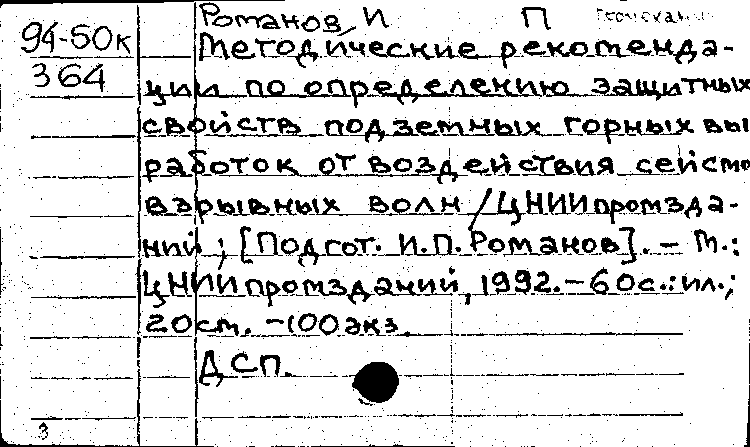 Романов, И П
94-50к
364
Методические рекоменда-
ции по определению защитных
свойств подземных горных вы
работок от воздействия сейсмо
взрывных волн / ЦНИИпромзда-
ний ; [Подгот. И.П. Романов]. - М.:
ЦНИИпромзданий, 1992. - 60с.: ил.;
20см. - 100экз.
ДСП.
3